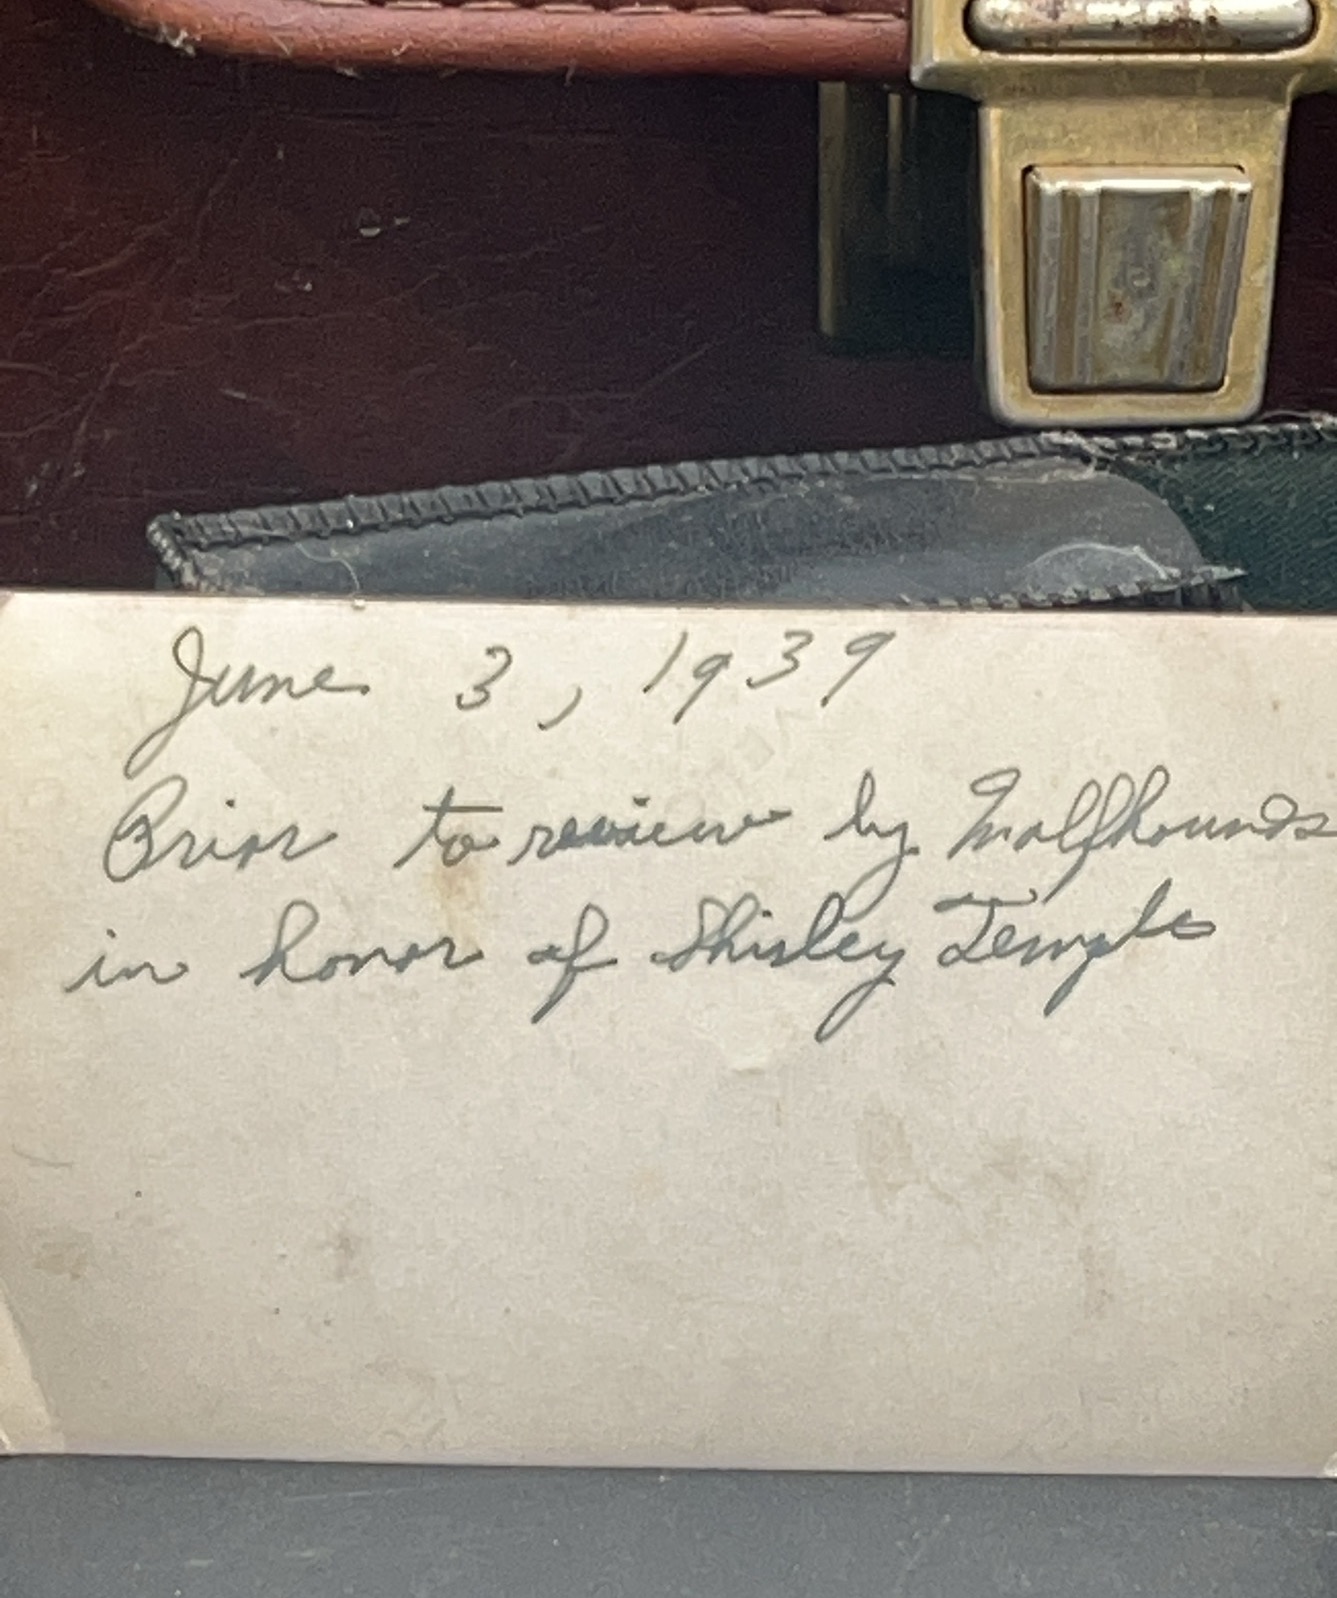 June 3, 1939
Prior to review by Wolfhounds
in honor of Shirley Temple